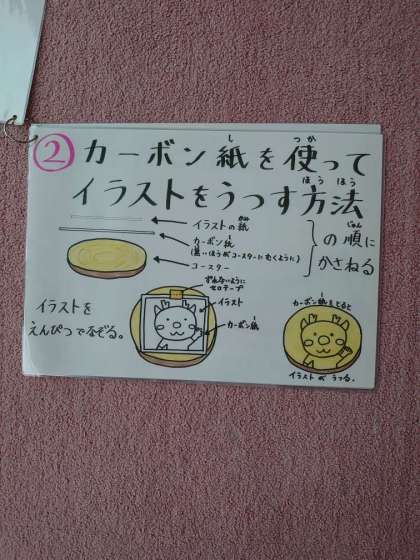 ② カーボン紙を使って
イラストをうつす方法
イラストの紙
カーボン紙
(黒いほうがコースターにむくように)
コースター
の順に
かさねる
イラストを
えんぴつでなぞる。
ずれないように
セロテープ
イラスト
カーボン紙
カーボン紙をとると
イラストがうつる。